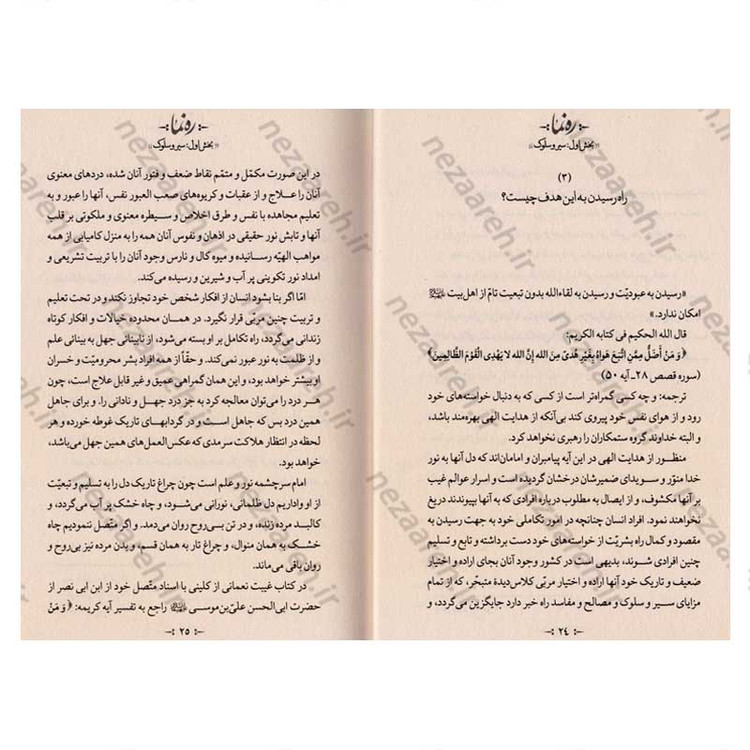 ره نما
«بخش اول: سیر و سلوک»
(۳)
راه رسیدن به این هدف چیست؟
«رسیدن به عبودیّت و رسیدن به لقاءالله بدون تبعیت تامّ از اهل بیت علیهم‌السلام
امکان ندارد.»
قال الله الحکیم فی کتابه الکریم:
﴿وَ مَنْ أَضَلُّ مِمَّنِ اتَّبَعَ هَواهُ بِغَیْرِ هُدیً مِنَ الله إِنَّ الله لا یَهْدِی الْقَوْمَ الظَّالِمِینَ﴾
(سوره قصص ۲۸ـ آیه ۵۰)
ترجمه: و چه کسی گمراه‌تر است از کسی که به دنبال خواسته‌های خود
رود و از هوای نفس خود پیروی کند بی‌آنکه از هدایت الهی بهره‌مند باشد،
و البته خداوند گروه ستمکاران را رهبری نخواهد کرد.
منظور از هدایت الهی در این آیه پیامبران و امامان‌اند که دل آنها به نور
خدا منوّر و سویدای ضمیرشان درخشان گردیده است و اسرار عوالم غیب
بر آنها مکشوف، و از ایصال به مطلوب درباره افرادی که به آنها بپیوندند دریغ
نخواهند نمود. افراد انسان چنانچه در امور تکاملی خود به جهت رسیدن به
مقصود و کمال راه بشریّت از خواسته‌های خود دست برداشته و تابع و تسلیم
چنین افرادی شوند، بدیهی است در کشور وجود آنان بجای اراده و اختیار
ضعیف و تاریک خود آنها اراده و اختیار مربّی کلاس‌دیدهٔ متبحّر، که از تمام
مزایای سیر و سلوک و مصالح و مفاسد راه خبر دارد جایگزین می‌گردد، و
۲۴
ره نما
«بخش اول: سیر و سلوک»
در این صورت مکمّل و متمّم نقاط ضعف و فتور آنان شده، دردهای معنوی
آنان را علاج و از عقبات و کریوه‌های صعب العبور نفس، آنها را عبور و به
تعلیم مجاهده با نفس و طرق اخلاص و سیطره معنوی و ملکوتی بر قلب
آنها و تابش نور حقیقی در اذهان و نفوس آنان همه را به منزل کامیابی از همه
مواهب الهیّه رسانیده و میوه کال و نارس وجود آنان را با تربیت تشریعی و
امداد نور تکوینی پر آب و شیرین و رسیده می‌کند.
امّا اگر بنا بشود انسان از افکار شخص خود تجاوز نکند و در تحت تعلیم
و تربیت چنین مربّی قرار نگیرد. در همان محدوده خیالات و افکار کوتاه
زندانی می‌گردد، راه تکامل بر او بسته می‌شود، از نابینائی جهل به بینائی علم
و از ظلمت به نور عبور نمی‌کند. و حقّاً از همه افراد بشر محرومیّت و خسران
او بیشتر خواهد بود، و این همان گمراهی عمیق و غیر قابل علاج است، چون
هر درد را می‌توان معالجه کرد به جز درد جهل و نادانی را. و برای جاهل
همین درد بس که جاهل است و در گردابهای تاریک غوطه خورده و هر
لحظه در انتظار هلاکت سرمدی که عکس‌العمل‌های همین جهل می‌باشد،
خواهد بود.
امام سرچشمه نور و علم است چون چراغ تاریک دل را به تسلیم و تبعیّت
از او واداریم دل ظلمانی، نورانی می‌شود، و چاه خشک پر آب می‌گردد، و
کالبد مرده زنده، و در تن بی‌روح روان می‌دمد. و اگر متّصل ننمودیم چاه
خشک به همان منوال، و چراغ تار به همان قسم، و بدن مرده نیز بی‌روح و
روان باقی می‌ماند.
در کتاب غیبت نعمانی از کلینی با اسناد متّصل خود از ابن ابی نصر از
حضرت ابی‌الحسن علیّ‌بن‌موسی راجع به تفسیر آیه کریمه: ﴿وَ مَنْ
۲۵
nezaareh.ir